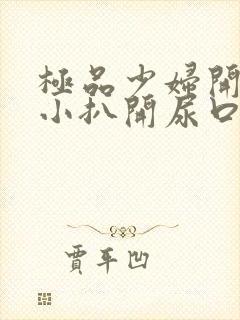 極品少婦開
小扒開尿口
賈平凹